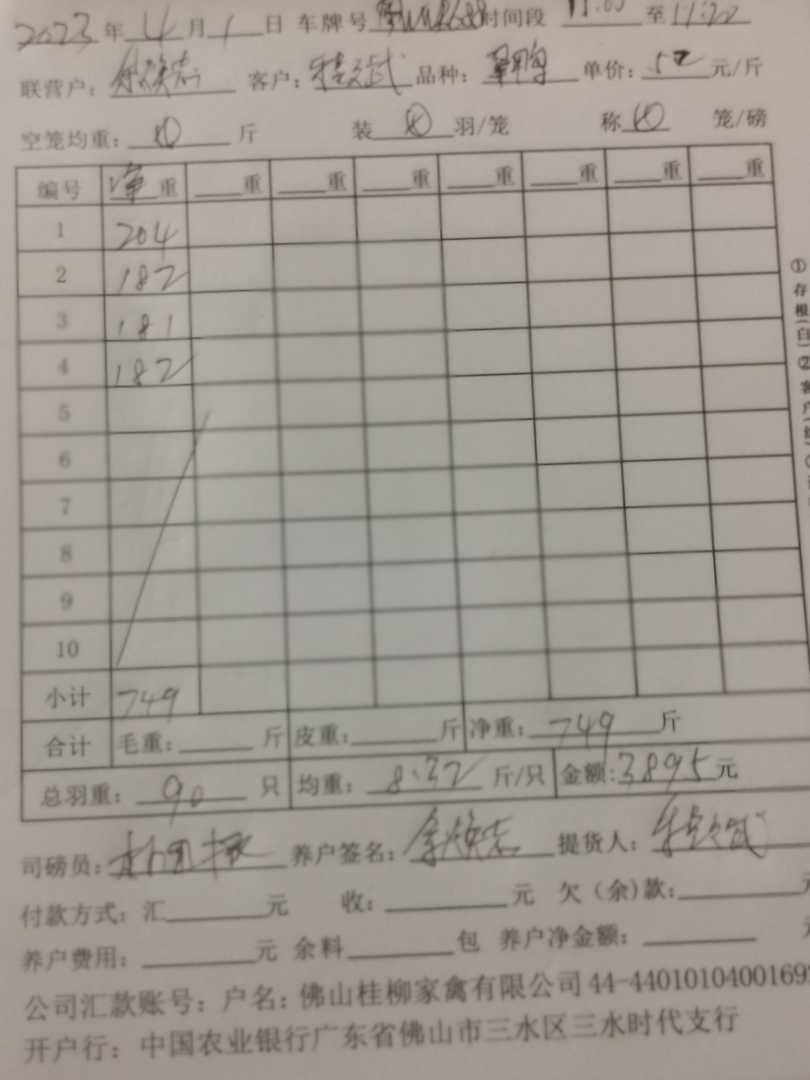 2023年 4 月 1 日 车牌号 时间段 11:05 至 11:20
联营户: 客户: 品种: 单价: 5.2 元/斤
空笼均重: 斤 装 羽/笼 称 10 笼/磅
编号 净重 ___重 ___重 ___重 ___重 ___重 ___重 ___重
1 204
2 182
3 181
4 182
5
6
7
8
9
10
小计 749
合计 毛重: 斤 皮重: 斤 净重: 749 斤
总羽重: 90 只 均重: 8.32 斤/只 金额: 3895 元
司磅员: 养户签名: 余焕志 提货人:
付款方式: 汇 元 收: 元 欠(余)款: 元
养户费用: 元 余料 包 养户净金额:
公司汇款账号: 户名: 佛山桂柳家禽有限公司 44-4401010400169
开户行: 中国农业银行广东省佛山市三水区三水时代支行
①存根(白)②客户(